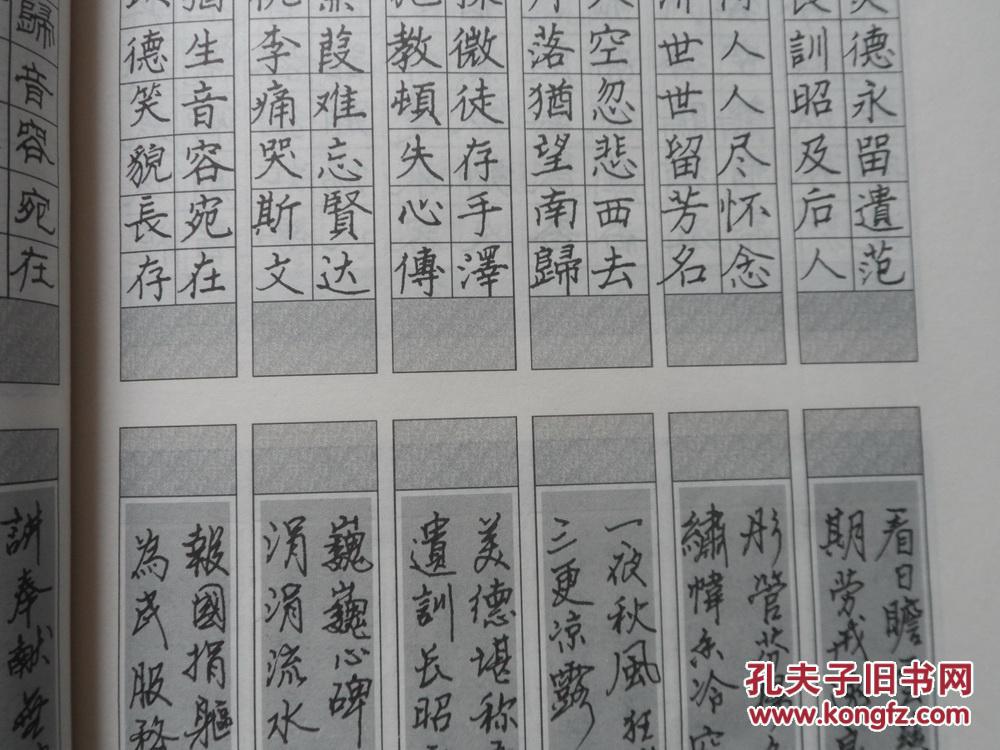 德永留遺范
訓昭及后人
人人尽怀念
世世留芳名
空忽悲西去
落猶望南歸
微徒存手澤
教頓失心傳
葭难忘賢达
李痛哭斯文
生音容宛在
德笑貌長存
歸音容宛在
看日瞻
期劳戒
彤管
繡幃 冷
一夜秋風狂
三更凉露
美德堪称
遺訓长昭
巍巍心碑
涓涓流水
報國捐軀
為民服務
讲奉献
孔夫子旧书网
www.kongfz.com